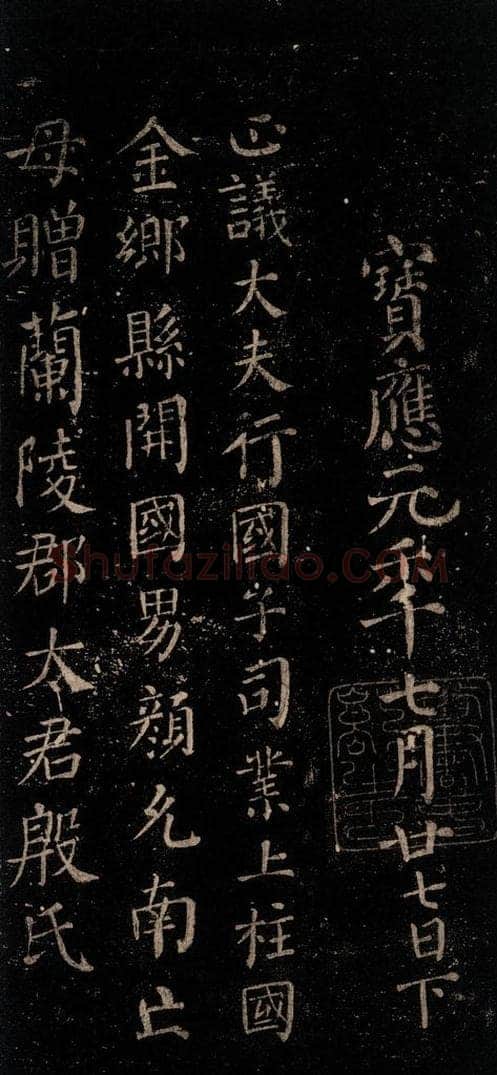 寶應元年七月廿七日下
正議大夫行國子司業上柱國
金鄉縣開國男顏允南亡
母贈蘭陵郡太君殷氏
Shufaziliao.com